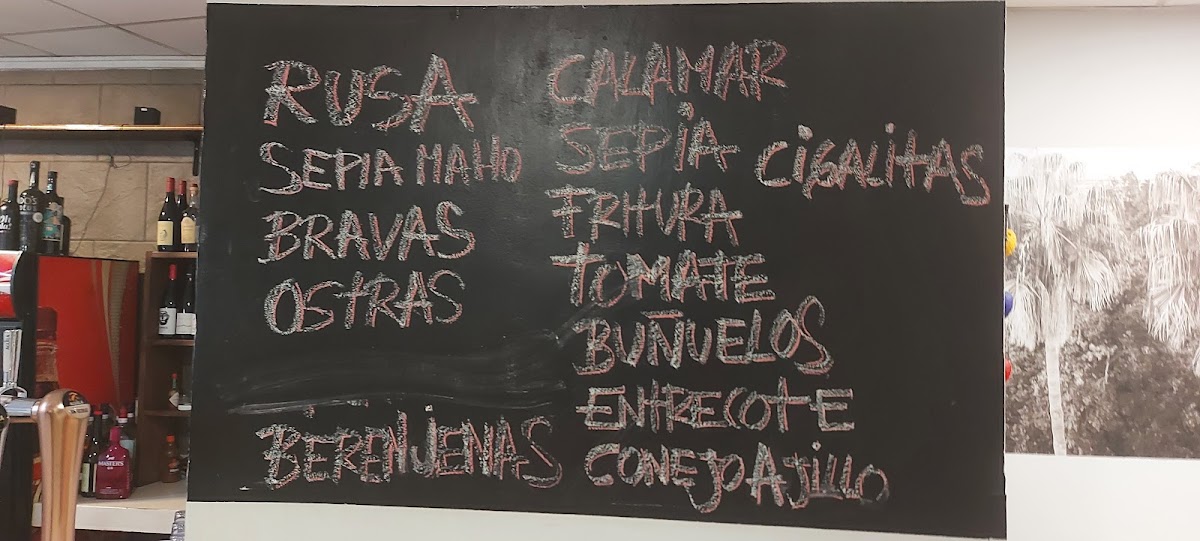 RUSA
SEPIA MAHO
BRAVAS
OSTRAS
BERENJENAS
CALAMAR
SEPIA
CIGALITAS
FRITURA
TOMATE
BUÑUELOS
ENTRECOTE
CONEJO AJILLO
MASTER'S